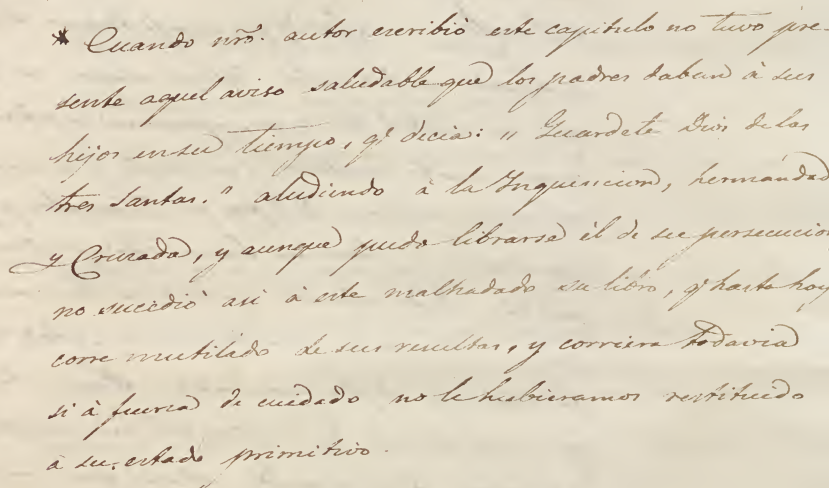 * Cuando nrō. autor escribió este capitulo no tuvo pre-
sente aquel aviso saludable que los padres daban à sus
hijos en su tiempo, q.e decia: „ Guardete Dios de las
tres Santas." aludiendo à la Inquisicion, hermandad
y Cruzada, y aunque pudo librarse él de su persecucion
no sucedió asi à este malhadado su libro, q.e hasta hoy
corre mutilado de sus resultas, y corriera todavia
si à fuerza de cuidado no le hubieramos restituido
à su estado primitivo.